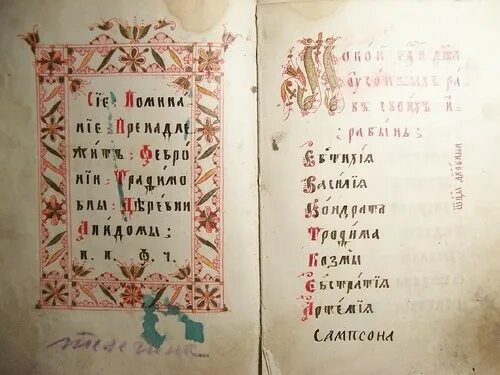 Сїе: Помина
нїе: Пренадле
житъ: Ѳевро
нїи: Традимо
вны: Деревни
Апидомы:
п. п. Ф. ч.
Покой Гди дша
усопшихъ ра
бъ своихъ и
рабынь:
Евтихїя
Василїя
Кондрата
Трофима
Козмы
Евстратїя
Артемїя
Сампсона